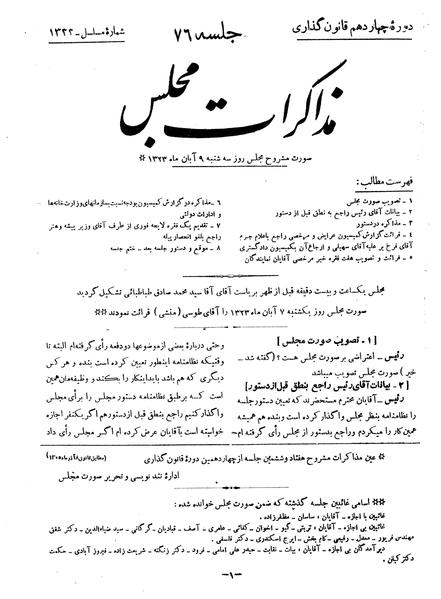 دورهٔ چهاردهم قانون گذاری
جلسه ۷۶
شمارهٔ مسلسل - ۱۳۲۲
مذاکرات مجلس
صورت مشروح مجلس روز سه شنبه ۹ آبان ماه ۱۳۲۳
فهرست مطالب:
۱ - تصویب صورت مجلس
۲ - بیانات آقای رئیس راجع به نطق قبل از دستور
۳ - مذاکره در دستور
۴ - قرائت گزارش کمیسیون عرایض و مرخصی راجع باعلام جرم
آقای فرخ بر علیه آقای سهیلی و ارجاع آن بکمیسیون دادگستری
۵ - قرائت و تصویب هفت فقره خبر مرخصی آقایان نمایندگان
۶ - مذاکره در گزارش کمیسیون بودجه نسبت بسازمانهای وزارتخانه‌ها
و ادارات دولتی
۷ - تقدیم یک فقره لایحه فوری از طرف آقای وزیر پیشه و هنر
راجع بلغو انحصار پیله
۸ - موقع و دستور جلسه بعد - ختم جلسه
مجلس یکساعت و بیست دقیقه قبل از ظهر بریاست آقای آقا سید محمد صادق طباطبائی تشکیل گردید
صورت مجلس روز یکشنبه ۷ آبان ماه ۱۳۲۳ را آقای طوسی (منشی) قرائت نمودند
[ ۱ - تصویب صورت مجلس ]
رئیس - اعتراضی بر صورت مجلس هست ؟ (گفته شد -
خیر) صورت مجلس تصویب میباشد
[ ۲ - بیانات آقای رئیس راجع بنطق قبل از دستور ]
رئیس - آقایان محترم مستحضرند که تعیین دستور جلسه
را نظامنامه بنظر مجلس واگذار کرده است و بنده هم همیشه
همین کار را میکردم و راجع بدستور از مجلس رأی گرفته ام -
وحتی درباره بعضی از موضوعها دو دفعه رأی گرفته‌ام البته تا
وقتیکه نظامنامه اینطور تعیین کرده است بنده و هر کس
دیگری که هم باشد باید اینکار را بکند و وظیفه‌مان همین
است که بر طبق نظامنامه دستور مجلس را برای مجلس
واگذار کنیم راجع بنطق قبل از دستور هم اگر یکنفر اجازه
خواسته است بآقایان عرض کرده ام اگر مجلس رأی داد
عین مذاکرات مشروح هفتاد و ششمین جلسه از چهاردهمین دورهٔ قانون گذاری
اداره تند نویسی و تحریر صورت مجلس
اسامی غائبین جلسه گذشته که ضمن صورت مجلس خوانده شده :
غائبین با اجازه - آقایان : ساسان - مظفرزاده .
غائبین بی اجازه - آقایان : تربتی - گیو - اخوان - کفائی - عامری - آصف - قبادیان - گرگانی - سید ضیاءالدین - دکتر شفق
مهندس فریور - معدل - رفیعی - کام بخش - ایرج اسکندری - فلسفی .
دیر آمدگان بی اجازه - آقایان : بیات - نقابت - حیدر علی امامی - فرود - دکتر زنگنه - شریعت زاده - فیروز آبادی - حکمت
دکتر کیان .
-۱-